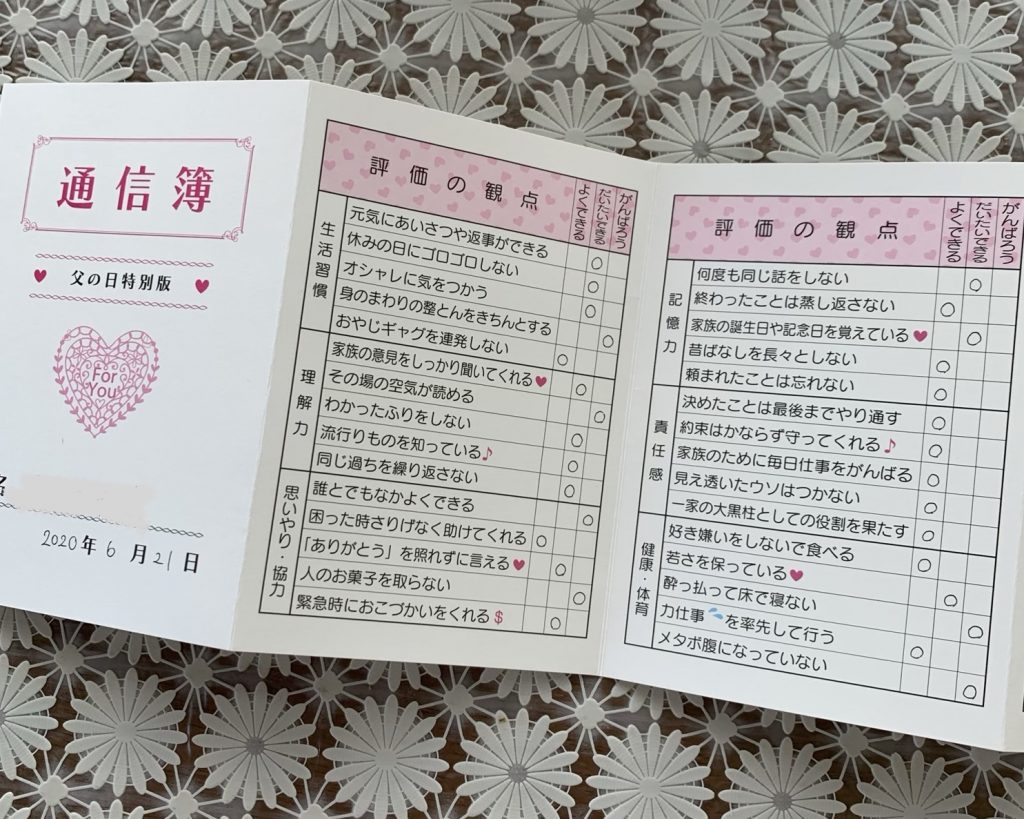 通信簿
父の日特別版
For
You
名
2020年6月21日
評価の観点
よくできる
だいたいできる
がんばろう
生活習慣
元気にあいさつや返事ができる ○
休みの日にゴロゴロしない ○
オシャレに気をつかう ○
身のまわりの整とんをきちんとする ○
おやじギャグを連発しない ○
理解力
家族の意見をしっかり聞いてくれる♥ ○
その場の空気が読める ○
わかったふりをしない ○
流行りものを知っている♪ ○
同じ過ちを繰り返さない ○
思いやり・協力
誰とでもなかよくできる ○
困った時さりげなく助けてくれる ○
「ありがとう」を照れずに言える♥ ○
人のお菓子を取らない ○
緊急時におこづかいをくれる$ ○
評価の観点
よくできる
だいたいできる
がんばろう
記憶力
何度も同じ話をしない ○
終わったことは蒸し返さない ○
家族の誕生日や記念日を覚えている♥ ○
昔ばなしを長々としない ○
頼まれたことは忘れない ○
責任感
決めたことは最後までやり通す ○
約束はかならず守ってくれる♪ ○
家族のために毎日仕事をがんばる ○
見え透いたウソはつかない ○
一家の大黒柱としての役割を果たす ○
健康・体育
好き嫌いをしないで食べる ○
若さを保っている♥ ○
酔っ払って床で寝ない ○
力仕事💦を率先して行う ○
メタボ腹になっていない ○